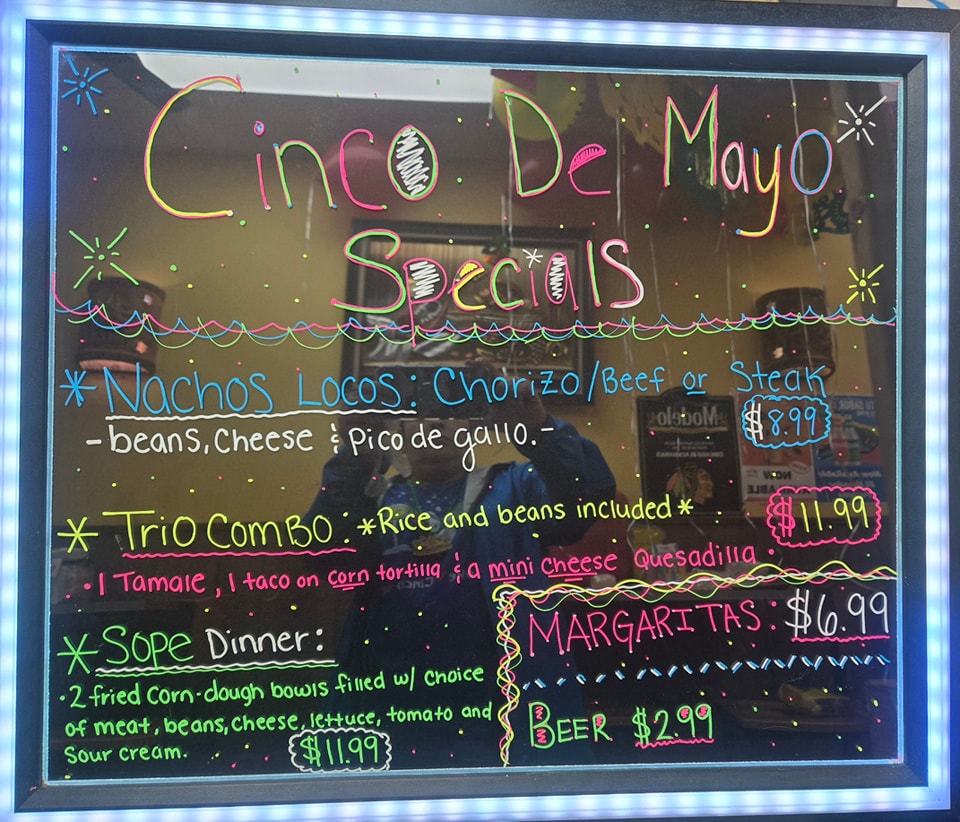 Cinco De Mayo
Specials
* Nachos Locos: Chorizo/Beef or Steak
$8.99
-beans, Cheese & Pico de gallo.-
* Trio Combo: *Rice and beans included*
$11.99
• 1 Tamale, 1 taco on corn tortilla & a mini cheese Quesadilla.
* Sope Dinner:
• 2 fried corn-dough bowls filled w/ choice
of meat, beans, cheese, lettuce, tomato and
Sour cream.
$11.99
MARGARITAS: $6.99
BEER $2.99
Modelo